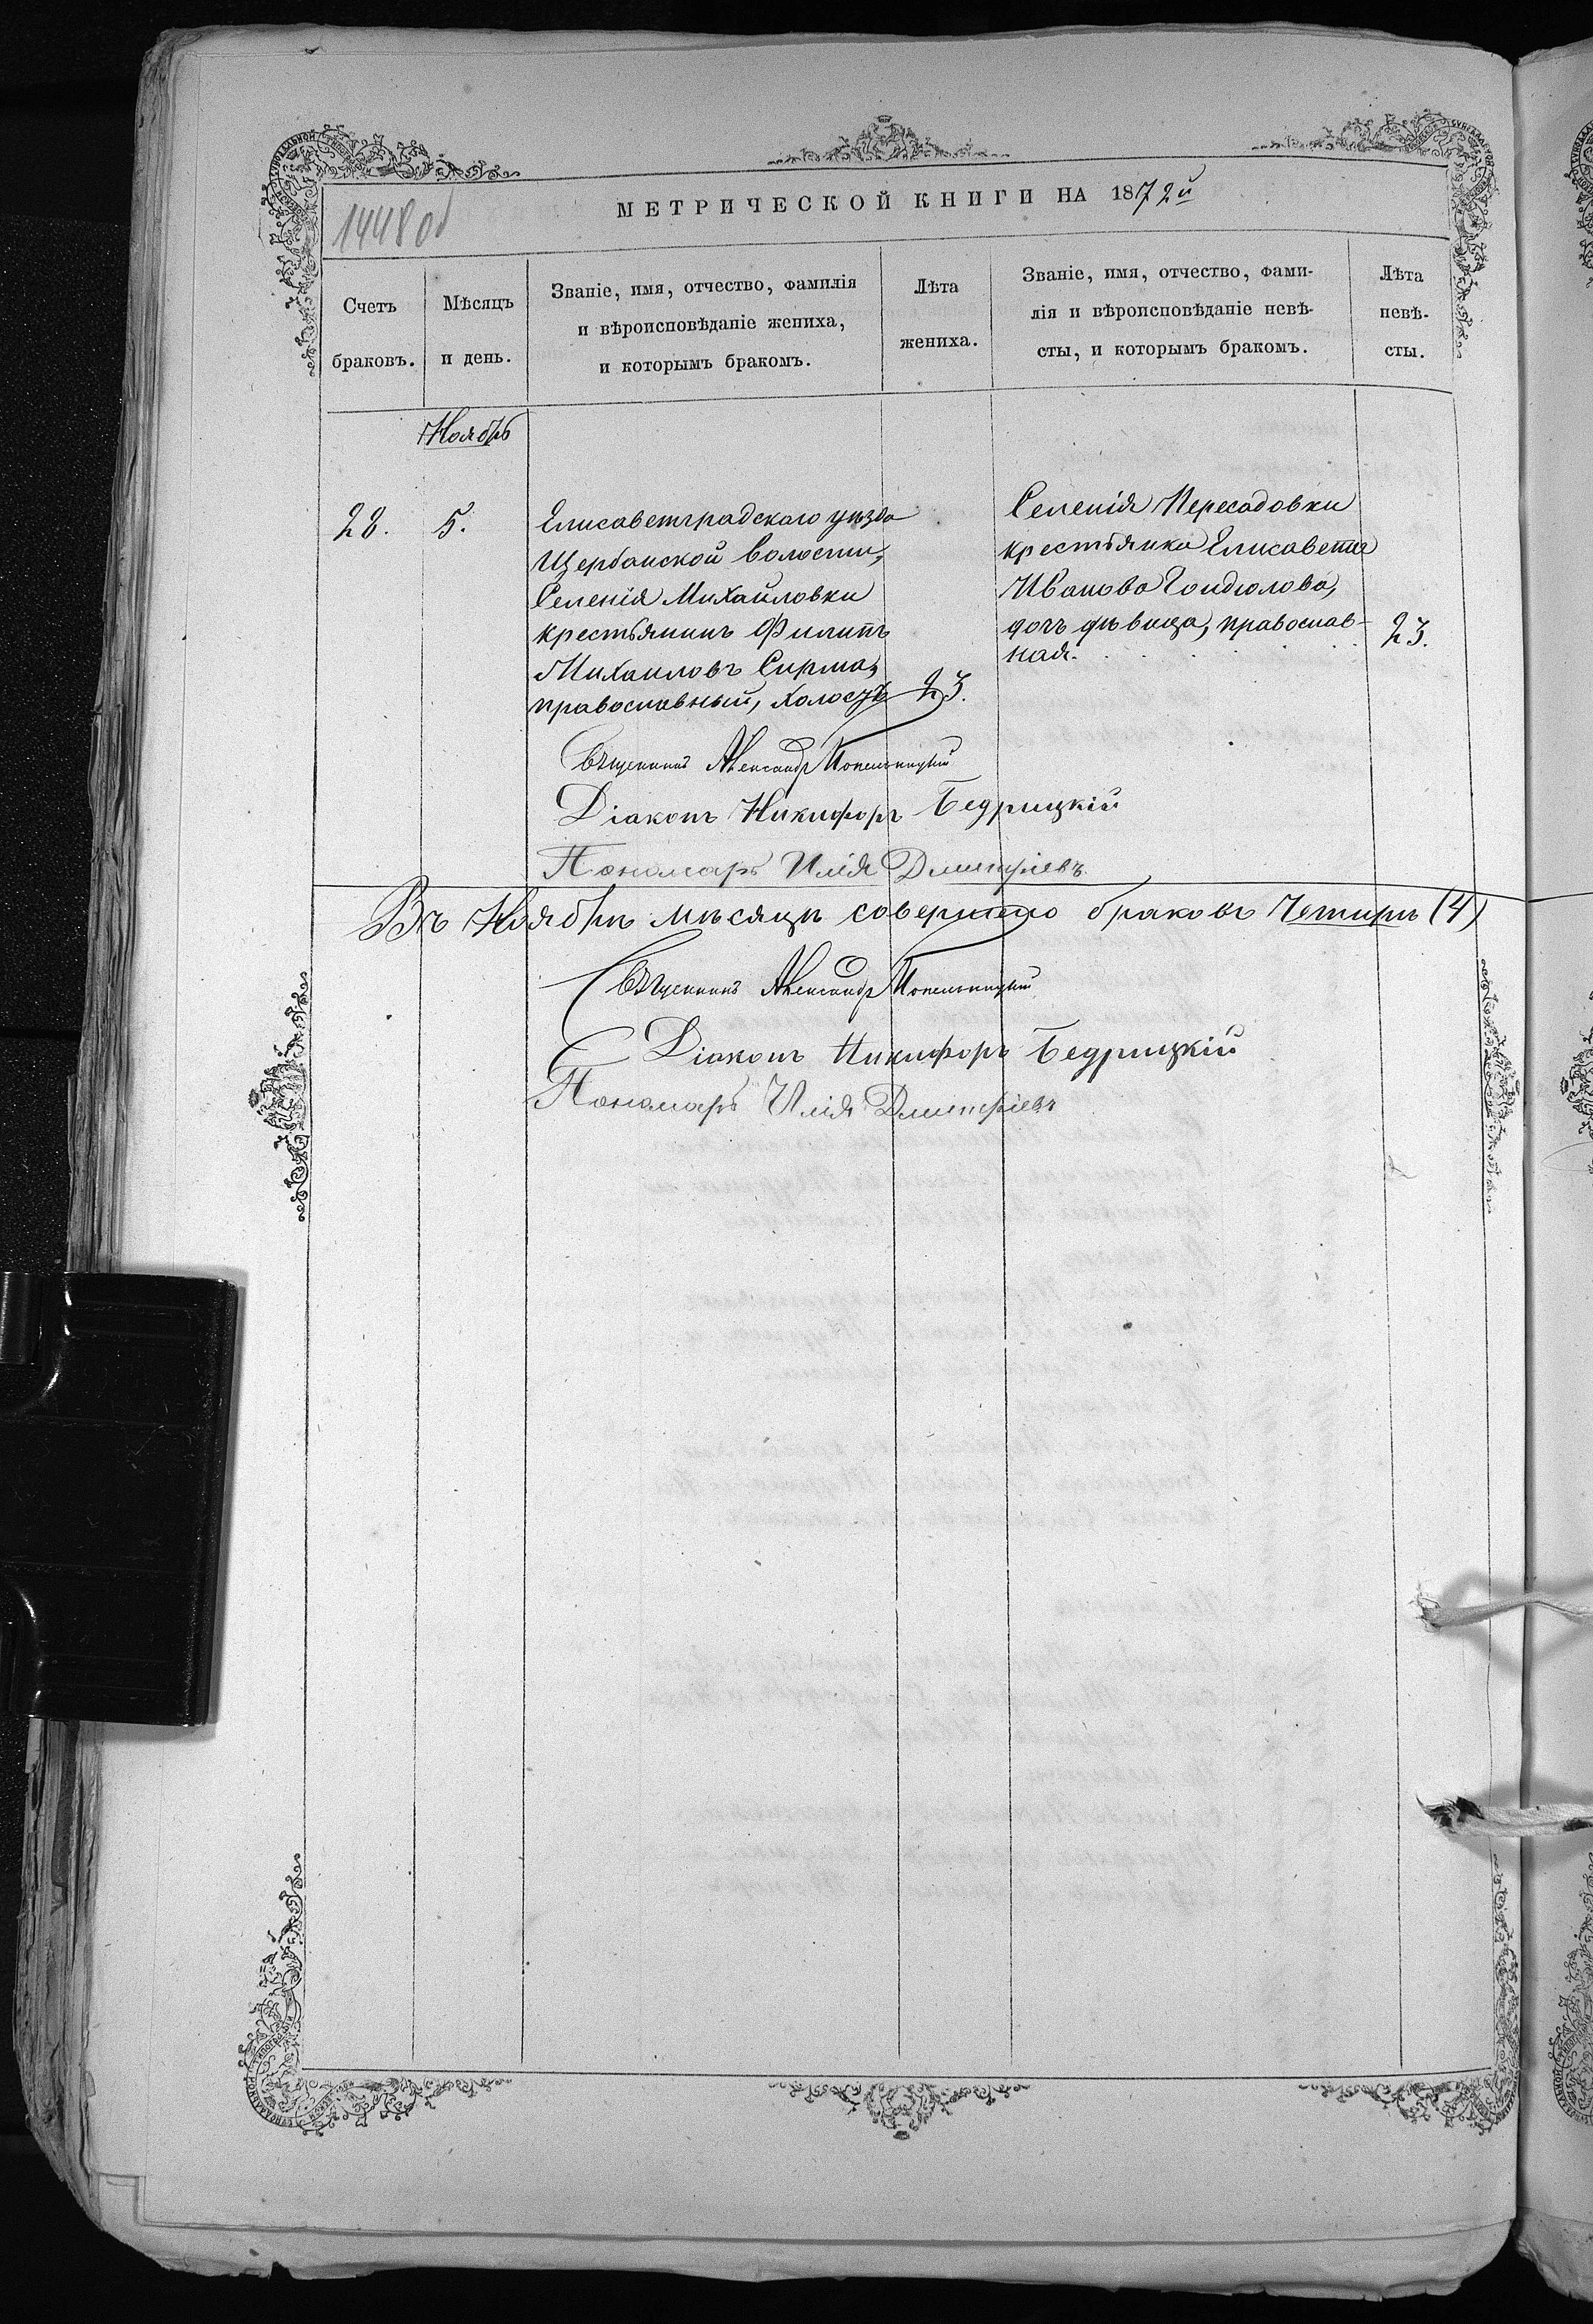 1448 об
МЕТРИЧЕСКОЙ КНИГИ НА 1872й
Счетъ браковъ.
Мѣсяцъ и день.
Званіе, имя, отчество, фамилія
и вѣроисповѣданіе жениха,
и которымъ бракомъ.
Лѣта жениха.
Званіе, имя, отчество, фами-
лія и вѣроисповѣданіе невѣ-
сты, и которымъ бракомъ.
Лѣта невѣ-
сты.
Ноябрь
28. 5.
Елисаветградскаго уѣзда
Щербанской волости,
Селенія Михайловки
крестьянинъ Филипъ
Михаиловъ Сирма,
православный, холостъ 23.
Селенія Пересадовки
крестьянка Елисавета
Иванова Гондюлова,
дочь дѣвица, православ-
ная. 23.
Священникъ Александръ
Діаконъ Никифоръ Бедрицкій
Пономарь Илія Дмитріевъ
Въ Ноябрѣ мѣсяцѣ совершено браковъ Четыри (4)
Священникъ Александръ
Діаконъ Никифоръ Бедрицкій
Пономарь Илія Дмитріевъ